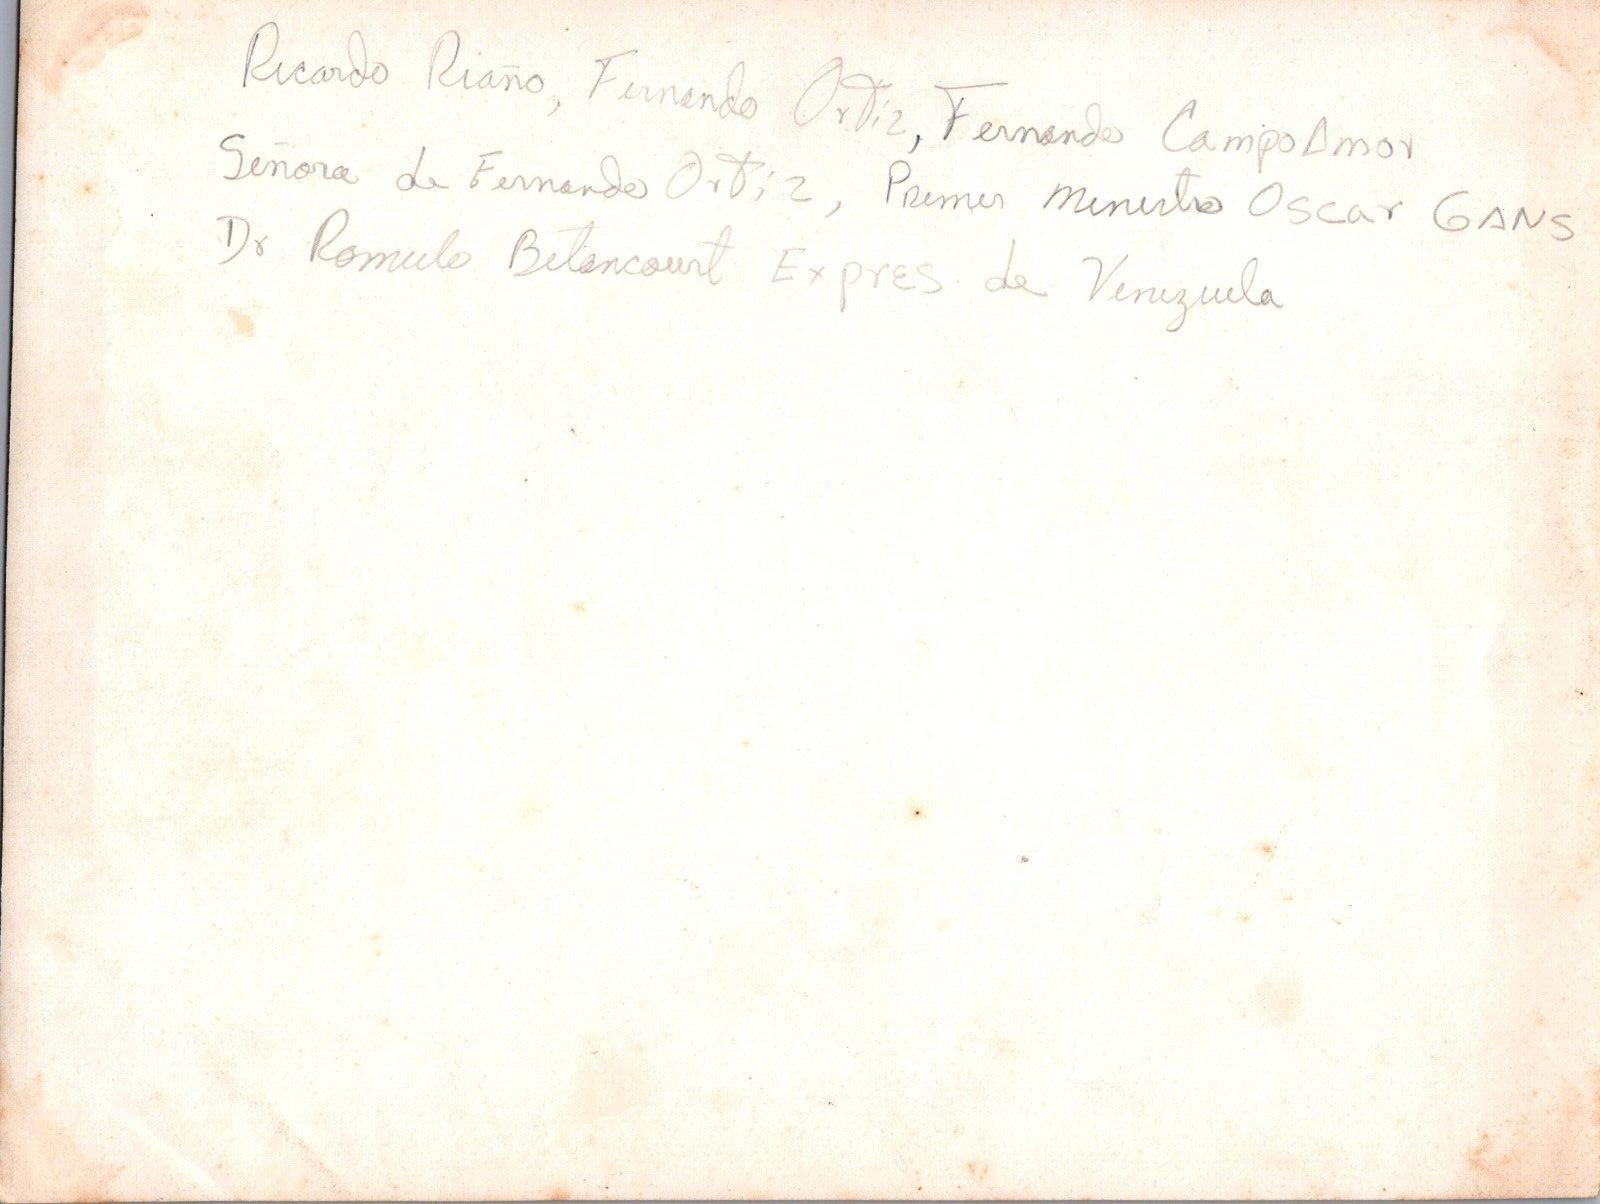 Ricardo Riaño, Fernando Ortiz, Fernando CampoAmor
Señora de Fernando Ortiz, Primer Ministro Oscar GANS
Dr Romulo Betancourt Expres de Venezuela